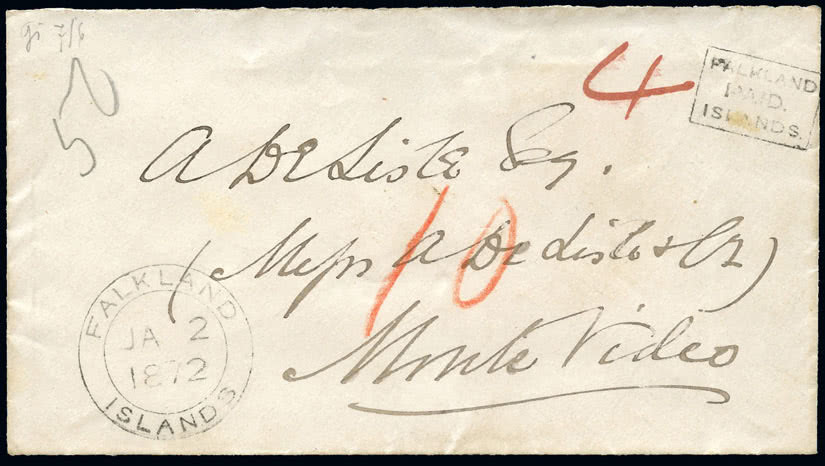 gi 7/6
50
4
FALKLAND
PAID.
ISLANDS.
A De Lisle Esq.
10
(Messrs A De Lisle & Co)
Monte Video
FALKLAND
JA 2
1872
ISLANDS